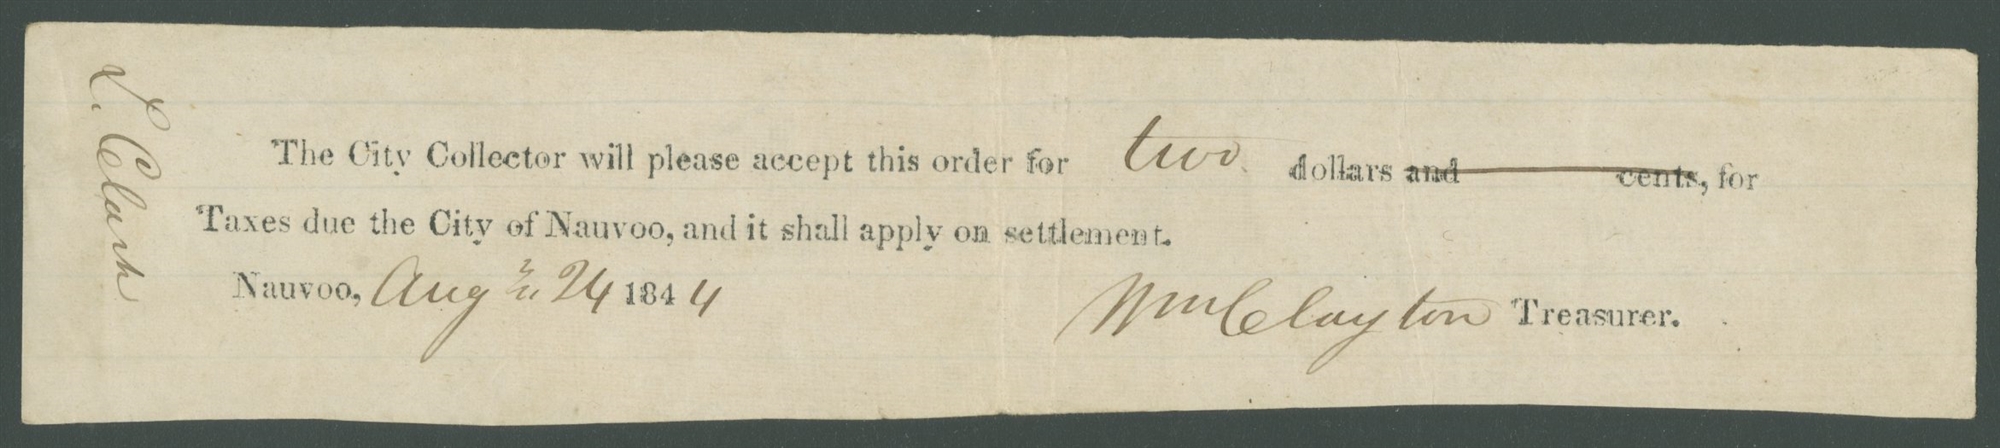 L. Clark
The City Collector will please accept this order for two dollars and cents, for
Taxes due the City of Nauvoo, and it shall apply on settlement.
Nauvoo, Aug 24 1844 Wm Clayton Treasurer.